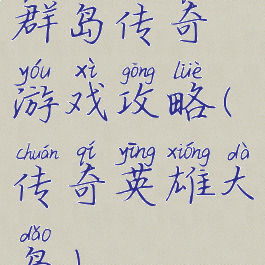 群岛传奇
yóu xì gōng lüè
游戏攻略(
chuán qí yīng xióng dà
传奇英雄大
dǎo
岛)